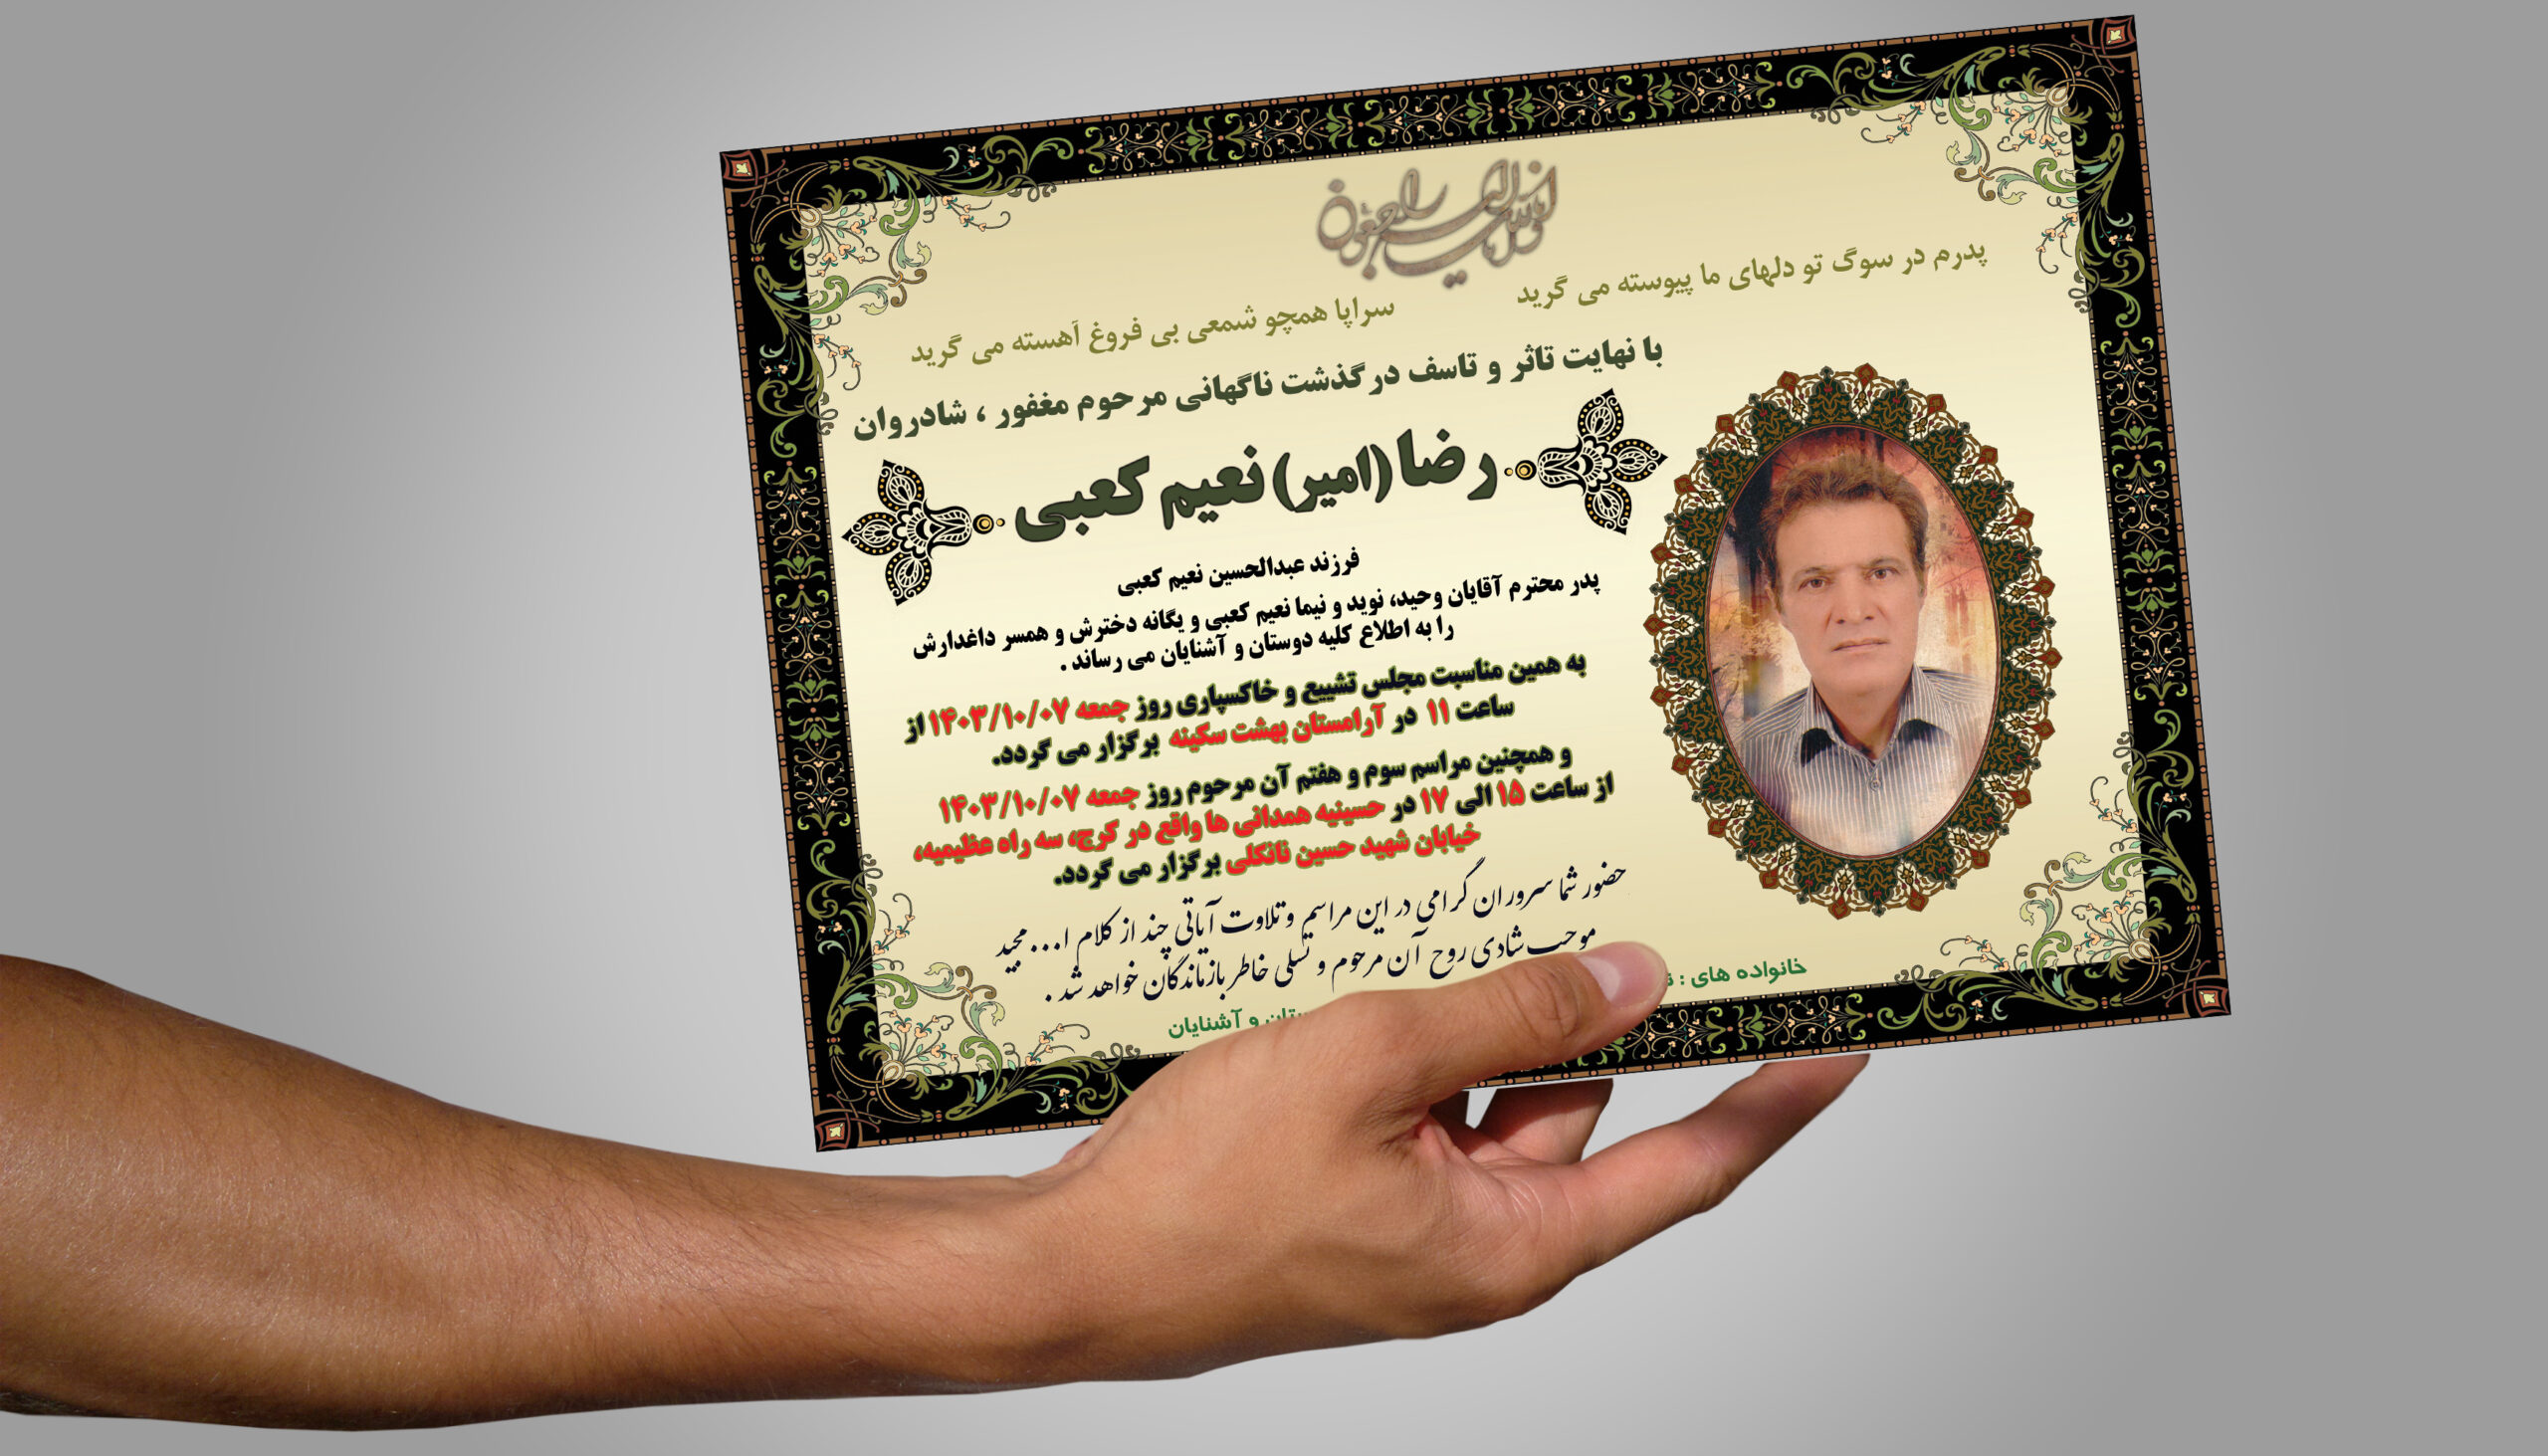 انا لله و انا الیه راجعون
پدرم در سوگ تو دلهای ما پیوسته می گرید
سراپا همچو شمعی بی فروغ آهسته می گرید
با نهایت تاثر و تاسف درگذشت ناگهانی مرحوم مغفور ، شادروان
رضا (امیر) نعیم کعبی
فرزند عبدالحسین نعیم کعبی
پدر محترم آقایان وحید، نوید و نیما نعیم کعبی و یگانه دخترش و همسر داغدارش
را به اطلاع کلیه دوستان و آشنایان می رساند .
به همین مناسبت مجلس تشییع و خاکسپاری روز جمعه ۱۴۰۳/۱۰/۰۷ از
ساعت ۱۱ در آرامستان بهشت سکینه برگزار می گردد.
و همچنین مراسم سوم و هفتم آن مرحوم روز جمعه ۱۴۰۳/۱۰/۰۷
از ساعت ۱۵ الی ۱۷ در حسینیه همدانی ها واقع در کرج، سه راه عظیمیه،
خیابان شهید حسین نانکلی برگزار می گردد.
حضور شما سروران گرامی در این مراسم و تلاوت آیاتی چند از کلام ا... مجید
موجب شادی روح آن مرحوم و تسلی خاطر بازماندگان خواهد شد .
خانواده های : و آشنایان